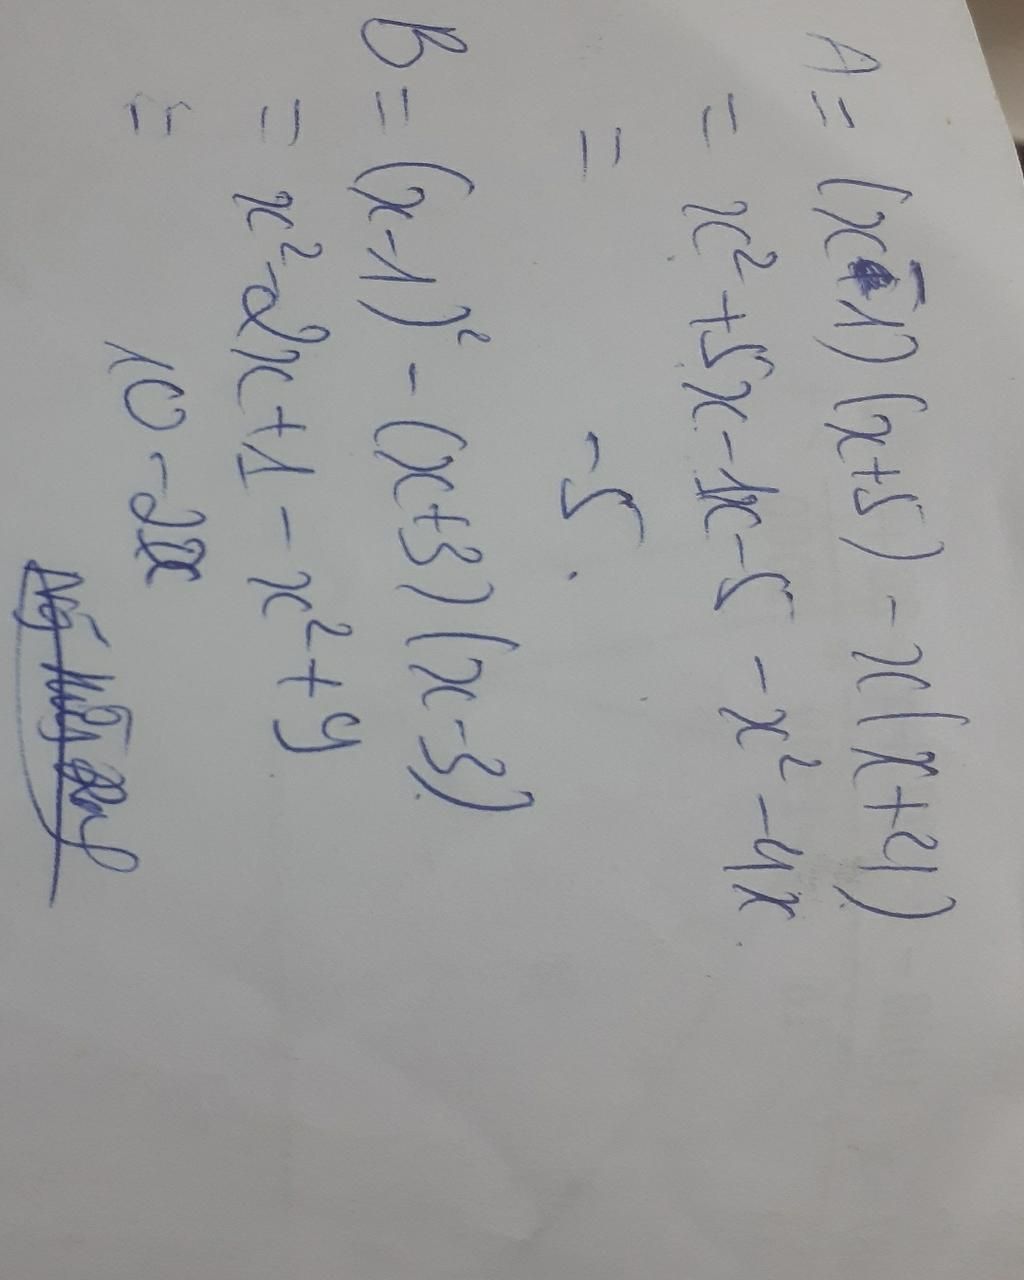 A = (x-1)(x+5) - x(x+4)
= x²+5x-1x-5 - x²-4x
= -5.
B = (x-1)² - (x+3)(x-3)
= x²-2x+1 - x²+9
= 10 - 2x